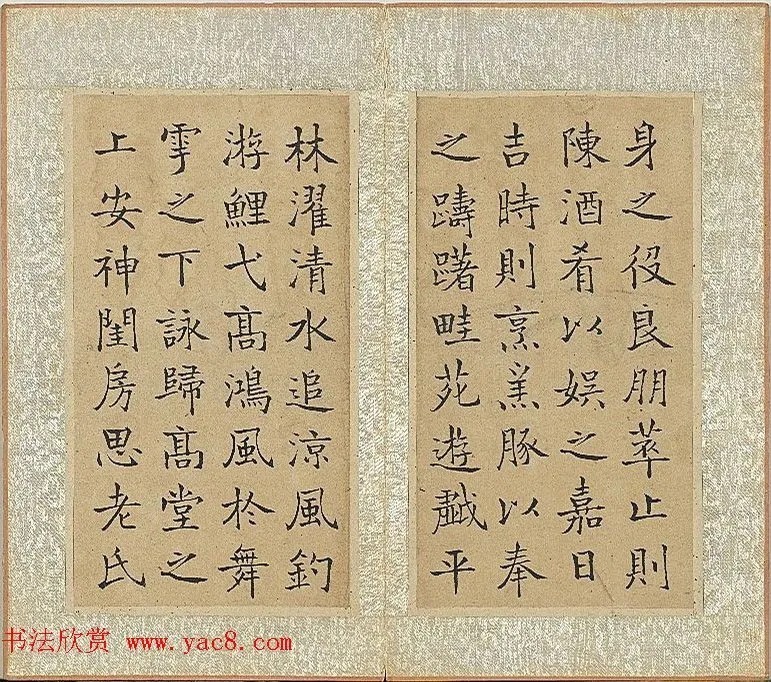 身之役良朋萃止則
陳酒肴以娛之嘉日
吉時則烹羔豚以奉
之躊躇畦苑遊戲平
林濯清水追涼風釣
游鯉弋髙鴻風於舞
雩之下詠歸髙堂之
上安神閨房思老氏
书法欣赏 www.yac8.com